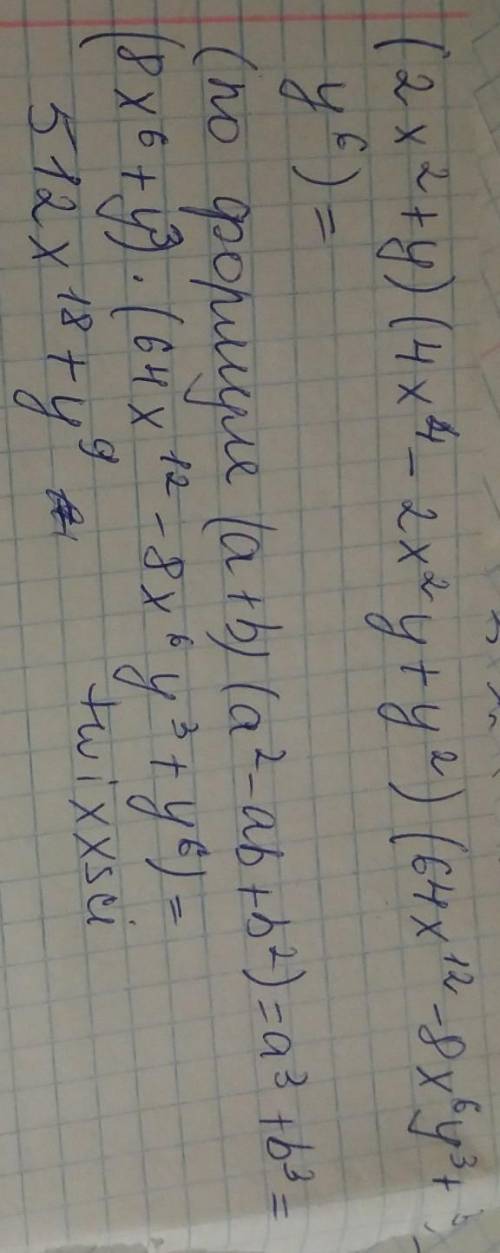 (2x² + y) (4x⁴ - 2x²y + y²) (64x¹² - 8x⁶y³ +
y⁶) =
(по формуле (a + b) (a² - ab + b²) = a³ + b³ =
(8x⁶ + y³) · (64x¹² - 8x⁶y³ + y⁶) =
512x¹⁸ + y⁹
twixxsci